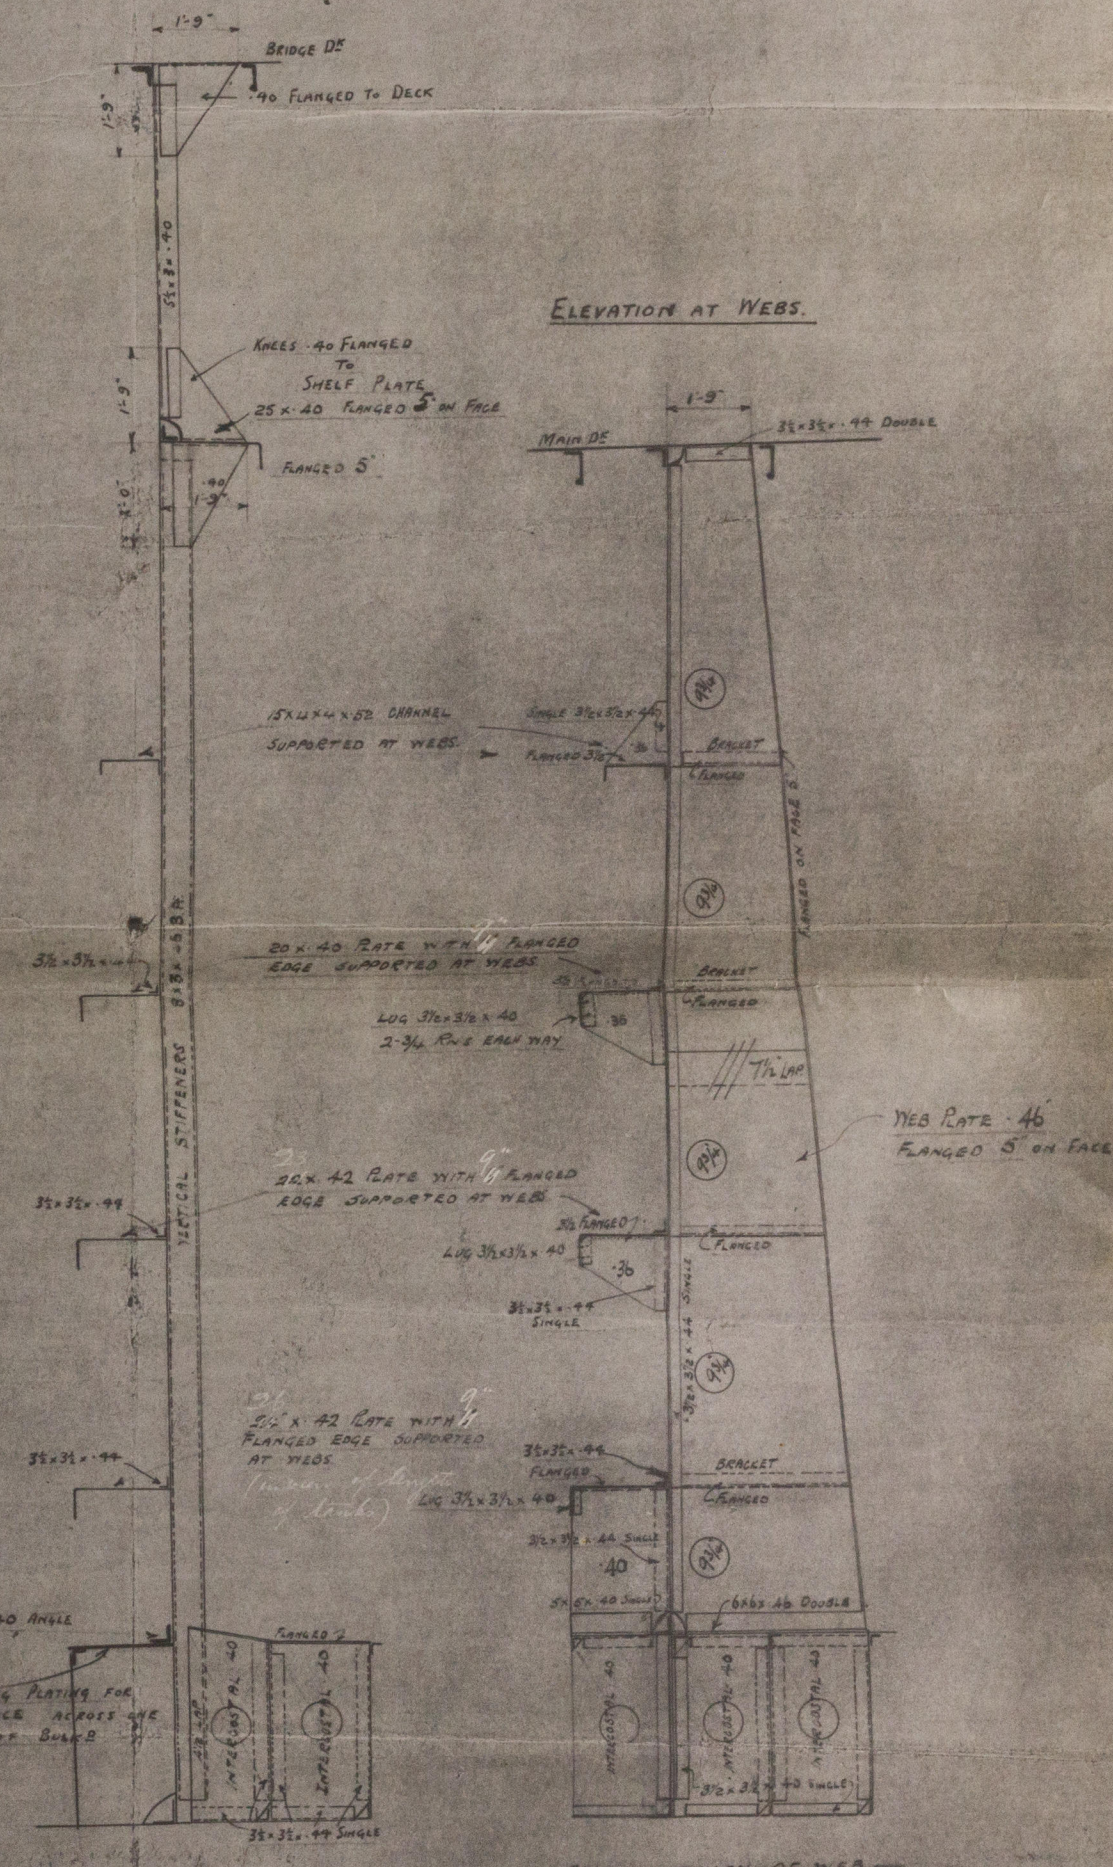 1'-9"
BRIDGE DK
.40 FLANGED TO DECK
1'-9"
5½×3×.40
ELEVATION AT WEBS.
KNEES .40 FLANGED
TO
SHELF PLATE
25×.40 FLANGED 5" ON FACE
1'-9"
FLANGED 5"
.40
1'-9"
1'-9"
3½×3½×.44 DOUBLE
MAIN DK
15×4×4×.52 CHANNEL
SUPPORTED AT WEBS.
SINGLE 3½×3½×.44
FLANGED 3½
.36
9¾
BRACKET
FLANGED
FLANGED ON FACE 5"
9¾
3½×3½×.44
20×.40 PLATE WITH 9" FLANGED
EDGE SUPPORTED AT WEBS
BRACKET
FLANGED
LUG 3½×3½×.40
2-¾ RIVS EACH WAY
.36
7½" LAP
VERTICAL STIFFENERS
WEB PLATE .46
FLANGED 5" ON FACE
9¾
.42 PLATE WITH 9" FLANGED
EDGE SUPPORTED AT WEBS
3½×3½×.44
3½ FLANGED
FLANGED
LUG 3½×3½×.40
.36
3½×3½×.44
SINGLE
3½×3½×.44 SINGLE
9¾
.42 PLATE WITH 9"
FLANGED EDGE SUPPORTED
AT WEBS
3½×3½×.44
3½×3½×.44
FLANGED
BRACKET
FLANGED
LUG 3½×3½×.40
3½×3½×.44 SINGLE
.40
9¾
5×5×.40 SINGLE
6×6×.46 DOUBLE
ANGLE
FLANGED
PLATING FOR
ACROSS ONE
OF BULKD
INTERCOSTAL .40
INTERCOSTAL .40
INTERCOSTAL .40
INTERCOSTAL .40
INTERCOSTAL .40
3½×3½×.40 SINGLE
3½×3½×.44 SINGLE